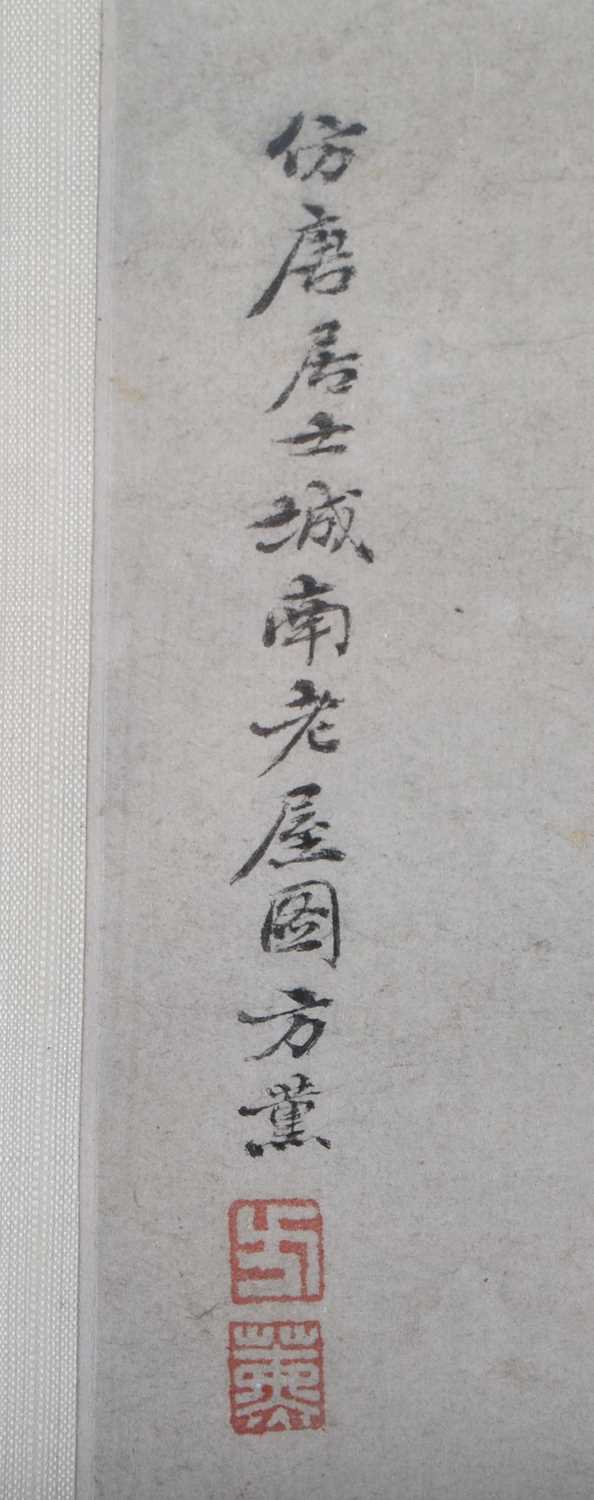 仿唐居士城南老屋图方薰
方
薰